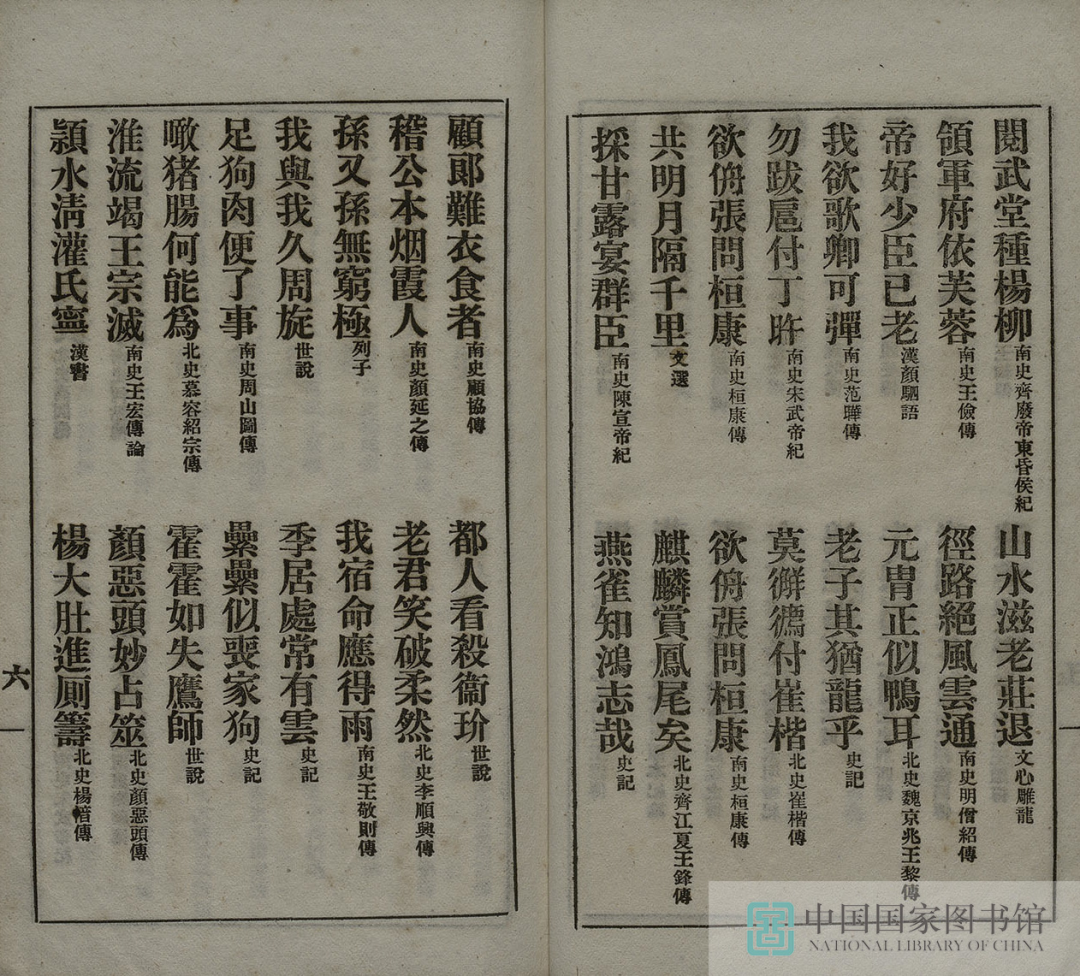 閱武堂種楊柳南史齊廢帝東昏侯紀
山水滋老莊退文心雕龍
領軍府依芙蓉南史王儉傳
徑路絕風雲通南史明僧紹傳
帝好少臣已老漢顏駟語
元胄正似鴨耳北史魏京兆王黎傳
我欲歌卿可彈南史范曄傳
老子其猶龍乎史記
勿跋扈付丁旿南史宋武帝紀
莫獬𢥠付崔楷北史崔楷傳
欲侜張問桓康南史桓康傳
欲侜張問桓康南史桓康傳
共明月隔千里文選
麒麟賞鳳尾矣北史齊江夏王鋒傳
採甘露宴群臣南史陳宣帝紀
燕雀知鴻志哉史記
顧郎難衣食者南史顧協傳
都人看殺衞玠世說
稽公本烟霞人南史顏延之傳
老君笑破柔然北史李順興傳
孫又孫無窮極列子
我宿命應得雨南史王敬則傳
我與我久周旋世說
季居處常有雲史記
足狗肉便了事南史周山圖傳
纍纍似喪家狗史記
噉猪腸何能爲北史慕容紹宗傳
霍霍如失鷹師世說
淮流竭王宗滅南史王宏傳論
顏惡頭妙占筮北史顏惡頭傳
潁水清灌氏寧漢書
楊大肚進厠籌北史楊愔傳
六
中国国家图书馆
NATIONAL LIBRARY OF CHINA